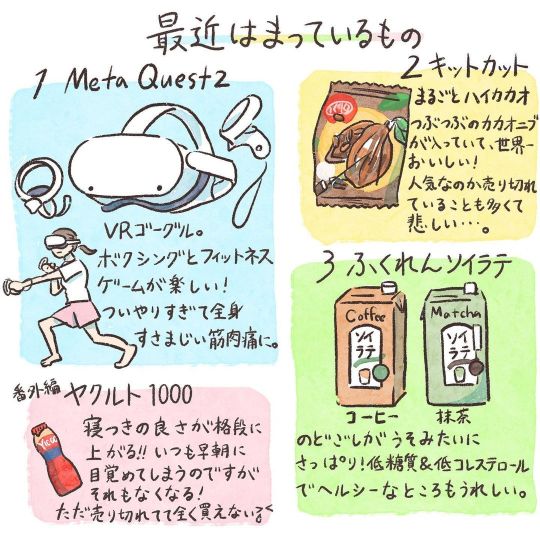 最近はまっているもの
1 Meta Quest2
VRゴーグル。
ボクシングとフィットネス
ゲームが楽しい!
ついやりすぎて全身
すさまじい筋肉痛に。
2 キットカット
まるごとハイカカオ
つぶつぶのカカオニブ
が入っていて、世界一
おいしい!
人気なのか売り切れ
ていることも多くて
悲しい…。
3 ふくれんソイラテ
Coffee
ソイラテ
Matcha
ソイラテ
コーヒー
抹茶
のどごしがうそみたいに
さっぱり!低糖質&低コレステロール
でヘルシーなところもうれしい。
番外編 ヤクルト1000
寝つきの良さが格段に
上がる!!いつも早朝に
目覚めてしまうのですが
それもなくなる!
ただ売り切れてて全く買えない